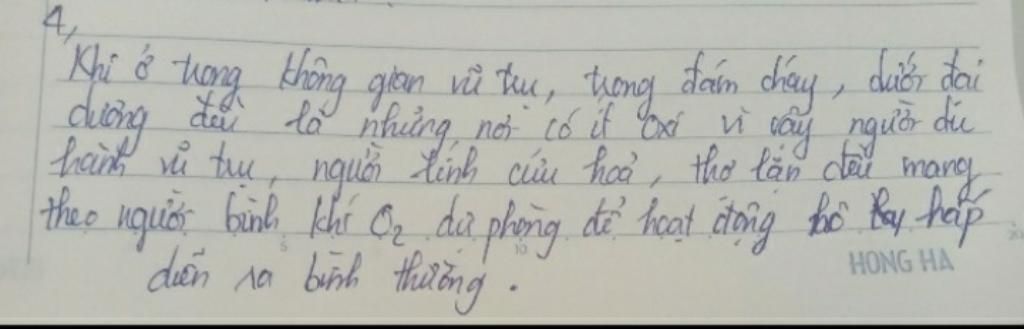 4,
Khi ở trong không gian vũ trụ, trong đám cháy, dưới đại
dương đều là những nơi có ít oxi vì vậy người du
hành vũ trụ, người lính cứu hoả, thợ lặn đều mang
theo người bình khí O₂ dự phòng để hoạt động hô hấp
diễn ra bình thường.
HONG HA